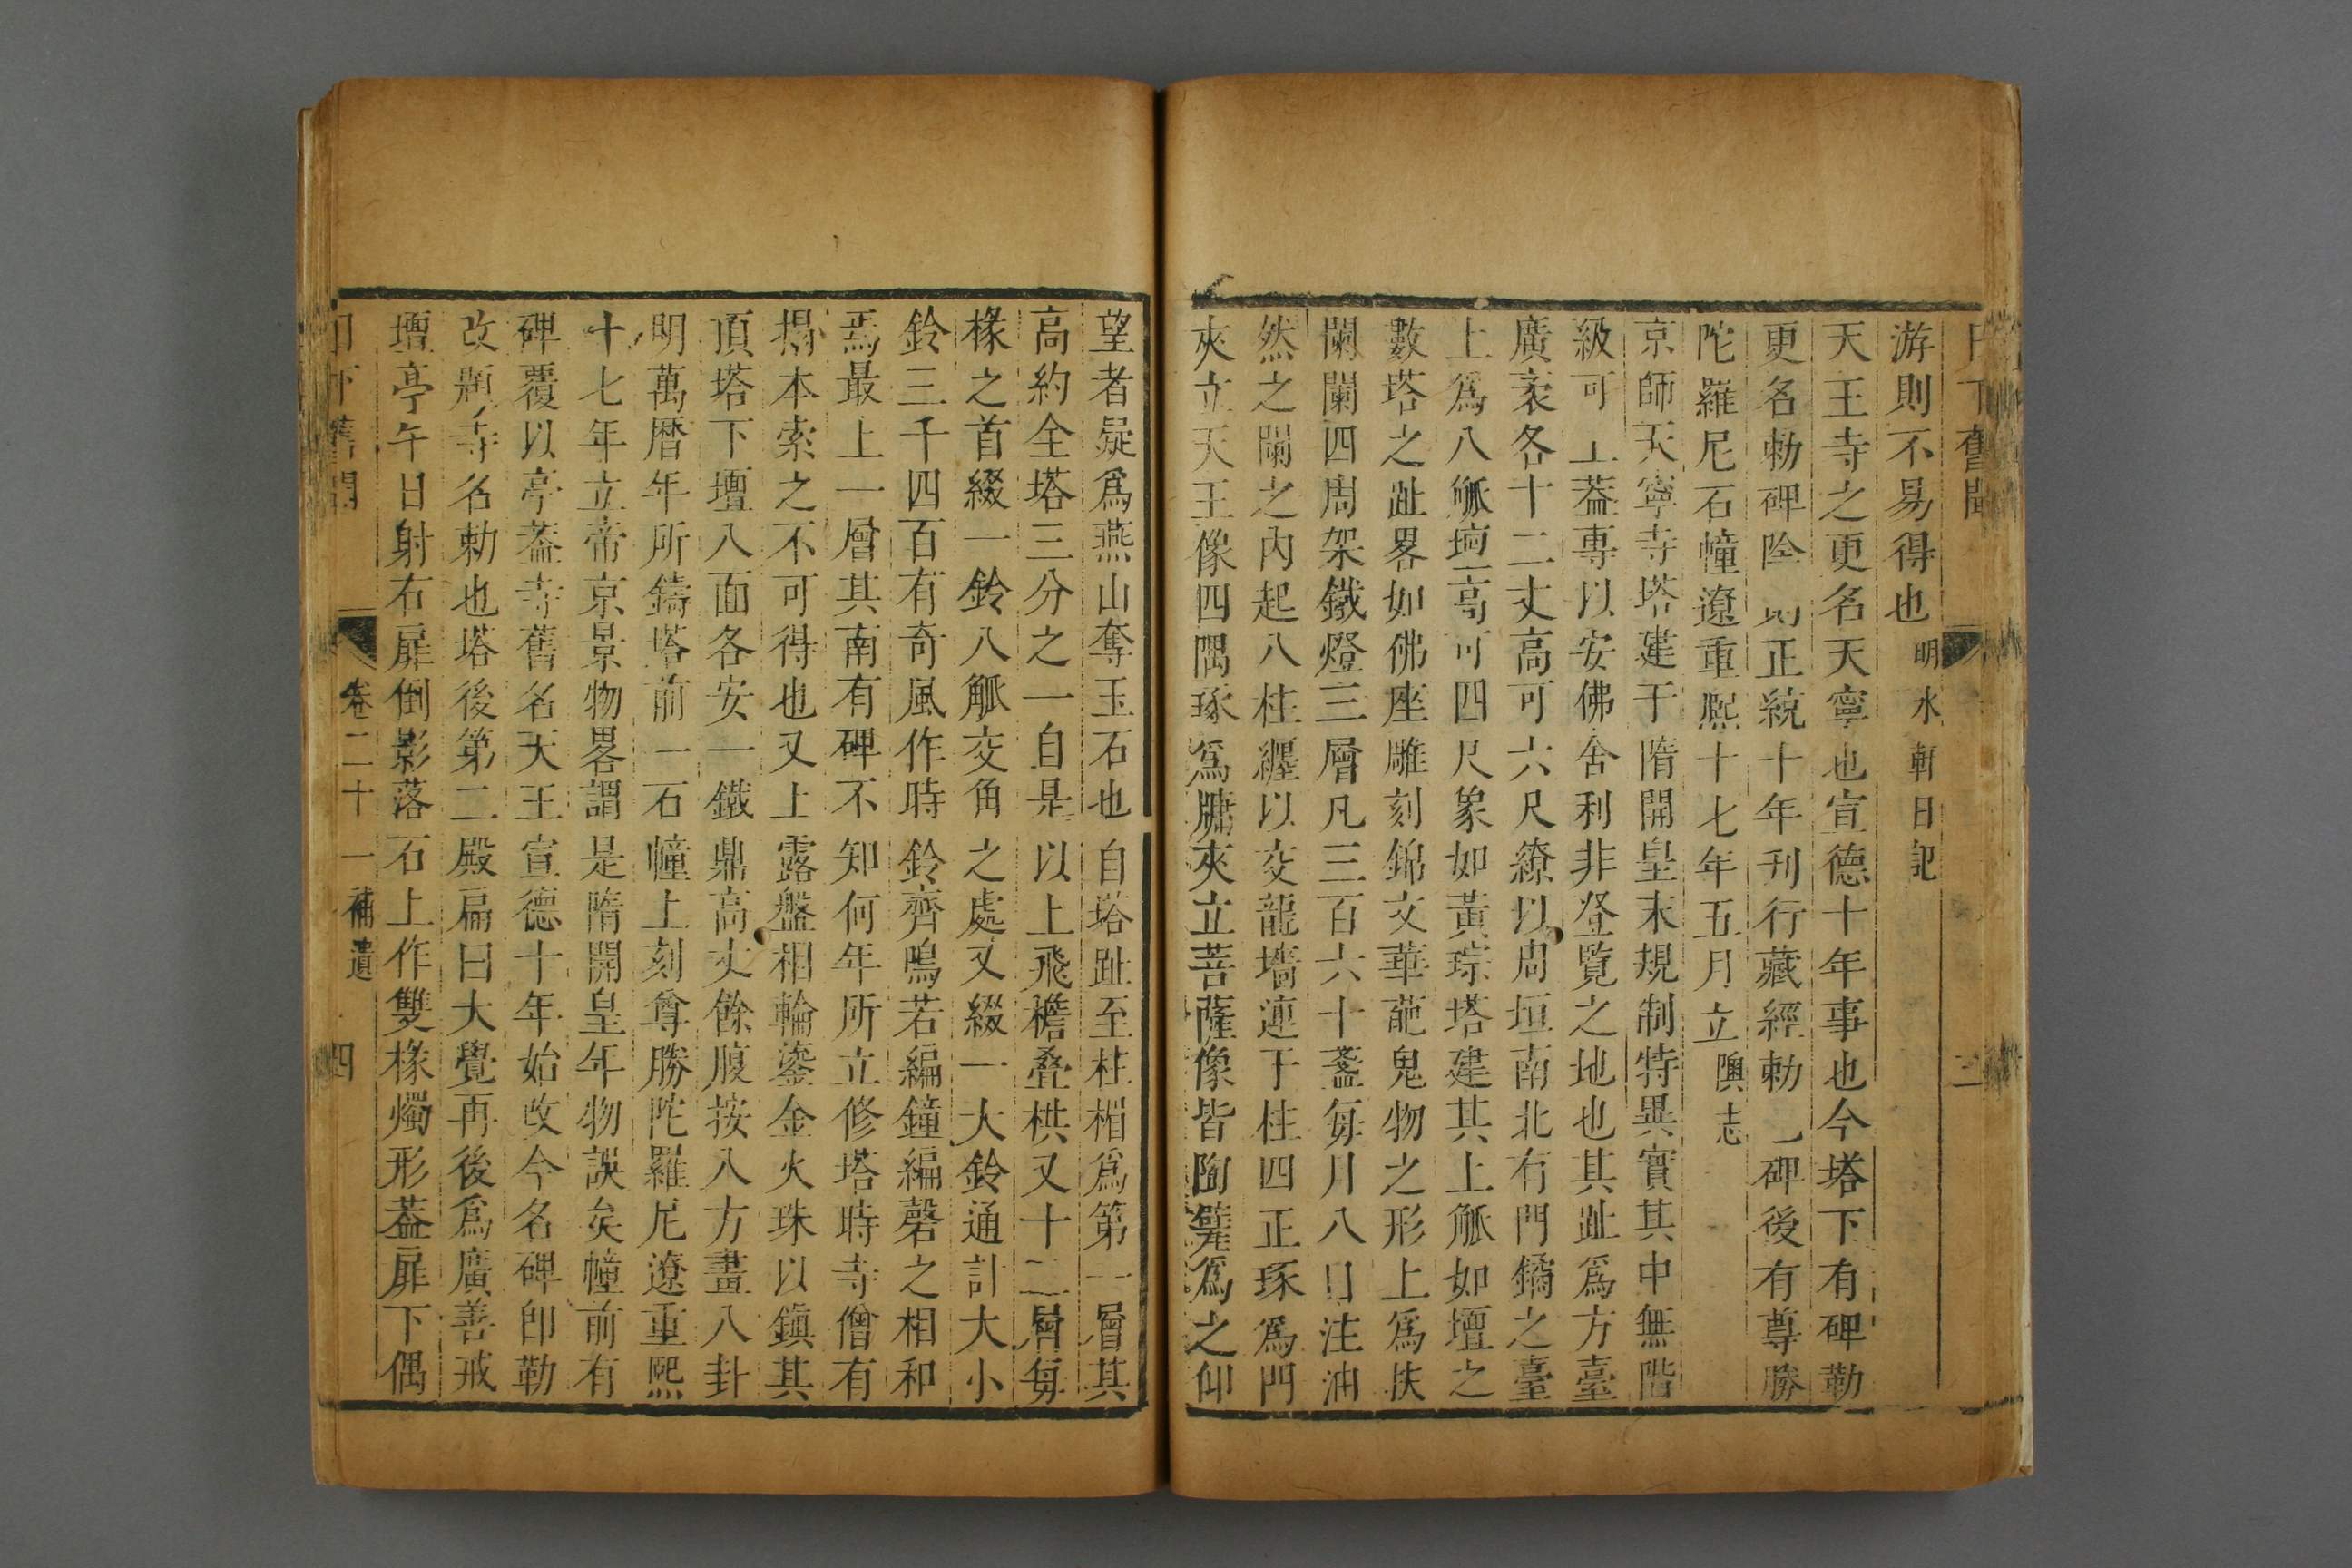 日下舊聞 三
游則不易得也 明水軒日記
天王寺之更名天寧也宣德十年事也今塔下有碑勒
更名勅碑陰則正統十年刊行藏經勅也碑後有尊勝
陀羅尼石幢遼重熙十七年五月立 隩志
京師天寧寺塔建于隋開皇末規制特異實其中無階
級可上葢專以安佛舍利非登覽之地也其趾爲方臺
廣袤各十二丈高可六尺繚以周垣南北有門鐍之臺
上爲八觚壇高可四尺象如黃琮塔建其上觚如壇之
數塔之趾畧如佛座雕刻錦文華葩鬼物之形上爲扶
闌闌四周架鐵燈三層凡三百六十盞每月八日注油
然之闌之內起八柱纒以交龍墻連于柱四正琢爲門
夾立天王像四隅琢爲牖夾立菩薩像皆陶甓爲之仰
望者疑爲燕山奪玉石也自塔趾至柱楣爲第一層其
高約全塔三分之一自是以上飛檐叠栱又十二層每
椽之首綴一鈴八觚交角之處又綴一大鈴通計大小
鈴三千四百有奇風作時鈴齊鳴若編鐘編磬之相和
焉最上一層其南有碑不知何年所立修塔時寺僧有
搨本索之不可得也又上露盤相輪鎏金火珠以鎮其
頂塔下壇八面各安一鐵鼎高丈餘腹按八方畫八卦
明萬曆年所鑄塔前一石幢上刻尊勝陀羅尼遼重熙
十七年立帝京景物畧謂是隋開皇年物誤矣幢前有
碑覆以亭葢寺舊名天王宣德十年始改今名碑卽勒
改題寺名勅也塔後第二殿扁曰大覺再後爲廣善戒
壇亭午日射右扉倒影落石上作雙椽燭形葢扉下偶
日下舊聞 卷二十一補遺 四